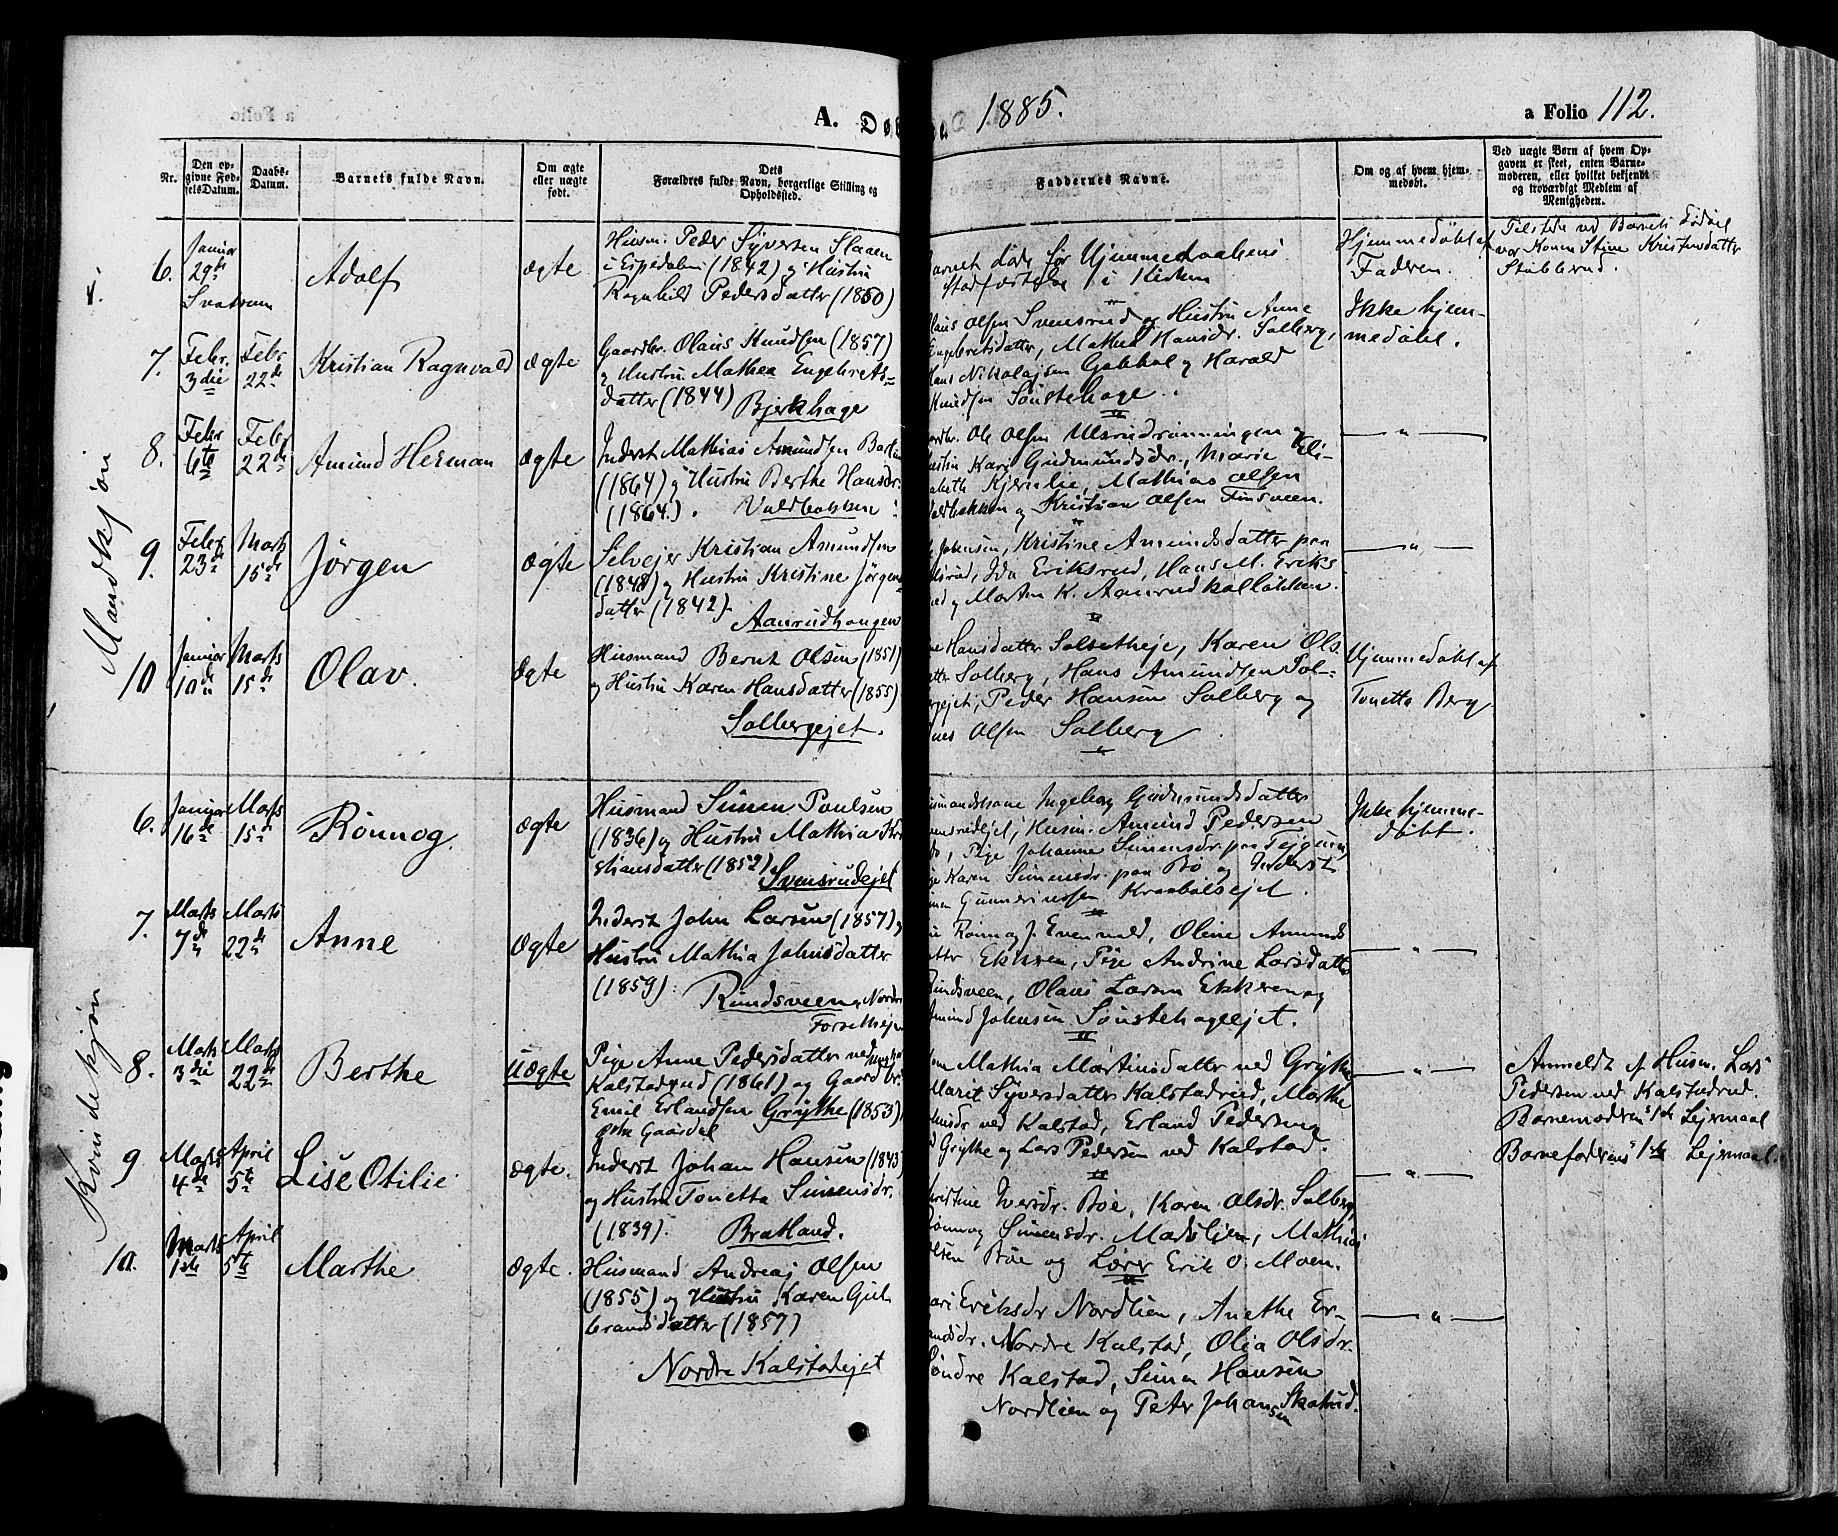 A. Dø
1885.
a Folio 112.
Nr.
Den op-
givne Fød-
selsDatum.
Daabs-
Datum.
Barnets fulde Navn.
Om ægte
eller uægte
født.
Dets
Forældres fulde Navn, borgerlige Stilling og
Opholdssted.
Faddernes Navne.
Om og af hvem hjem-
medøbt.
Ved uægte Børn af hvem Op-
gaven er skeet, enten Barne-
moderen, eller hvilket bekjendt
og troværdigt Medlem af
Menigheden.
Mandkjøn
6.
Januar
29de
Svatsum
Adolf
Ægte
Husm. Peder Syversen Slaaen
i Espedalen (1842) og Hustru
Ragnhild Pedersdatter (1850)
Barnet døde før Hjemmedaabens
Stadfæstelse i Kirken
Hjemmedøbt af
Faderen.
Tilstede ved Barnets Fødsel
var Konen Stine Kristensdatter
Stubberud.
7.
Febr.
3die
Febr
22de
Kristian Ragnvald
Ægte
Gaardbr. Olaus Knudsen (1857)
og Hustru Mathea Engebrets-
datter (1844) Bjerkhage
Olaus Olsen Svensrud og Hustru Anne
Engebretsdatter, Mathea Hansdr. Solberg,
Hans Nikolajsen Gobbol og Harald
Knudsen Sønstehage.
Ikke hjem-
medøbt.
8.
Febr
6te
Febr
22de
Amund Herman
Ægte
Inderst Mathias Amundsen
(1864) og Hustru Berthe Hansdr.
(1864). Valdbakken
Gaardbr. Ole Olsen Ulsrudrønningen og
Hustru Kari Gudmundsdr., Marie Eli-
sabeth Kjernlie, Mathias Olsen
Valdbakken og Kristian Olsen Finsveen.
— " —
9.
Febr
23de
Marts
15de
Jørgen
Ægte
Selvejer Kristian Amundsen
(1848) og Hustru Kristine Jørgens-
datter (1842). Aanrudhaugen
Johnsen, Kristine Amundsdatter paa
Ida Eriksrud, Hans M. Eriks
rud og Morten K. Aanrudkølløkken.
— " —
10
Januar
10de
Marts
15de
Olav.
Ægte
Husmand Bernt Olsen (1851)
og Hustru Karen Hansdatter (1855)
Solbergejet.
Hansdatter Solsetheje, Karen Ols
datter Solberg, Hans Amundsen Sol-
bergejet, Peder Hansen Solberg og
Olsen Solberg
Hjemmedøbt af
Tonetta Berg
Kvindekjøn
6.
Januar
16de
Marts
15de
Rønnog.
Ægte
Husmand Simen Poulsen
(1836) og Hustru Mathia Kri
stiansdatter (1852) Svensrudejet
Husmandskone Ingeborg Gudmundsdatter
Svensrudejet, Husm. Amund Pedersen
Pige Johanne Simensdr. paa Fejgum,
Pige Karen Simensdr. paa Bø og Inderst
Simen Gunnerinssen Kraabølsejet.
Ikke hjemme-
døbt.
7.
Marts
7de
Marts
22de
Anne
Ægte
Inderst John Larsen (1857) og
Hustru Mathia Johnsdatter
(1859). Rundsveen, Nordre
Forsethejet
Rønnog J. Evenvold, Oline Amunds
datter Ekkren, Pige Andrine Larsdatter
Rundsveen, Olaus Larsen Ekkren og
Amund Johnsen Sønstehageejet.
— " —
8.
Marts
3die
Marts
22de
Berthe
Uægte
Pige Anne Pedersdatter ved
Kalstadrud (1861) og Gaardbr.
Emil Erlandsen Grythe (1853),
Østre Gausdal
Kone Mathia Martinsdatter ved Grythe
Marit Syversdatter Kalstadrud, Marthe
ved Kalstad, Erland Pedersen
Grythe og Lars Pedersen ved Kalstad.
— " —
Anmeldt af Husm. Lars
Pedersen ved Kalstadrud.
Barnemoderens 1ste Lejermaal
Barnefaderens 1ste Lejermaal.
9
Marts
4de
April
5te
Lise Otilie
Ægte.
Inderst Johan Hansen (1843)
og Hustru Tonetta Simensdr.
(1839). Bratland.
Kristine Iversdr. Bøe, Karen Olsdr. Solberg,
Rønnog Simensdr. Madslien, Mathias
Olsen Bøe og Lærer Erik O. Moen.
— " —
10.
Marts
1ste
April
5te
Marthe
Ægte.
Husmand Andreas Olsen
(1855) og Hustru Karen Gul
brandsdatter (1857)
Nordre Kalstadejet
Kari Eriksdr Nordlien, Anethe Er-
landsdr. Nordre Kalstad, Olia Olsdr.
Søndre Kalstad, Simen Hansen
Nordlien og Peter Johansen Skaurud.
— " —